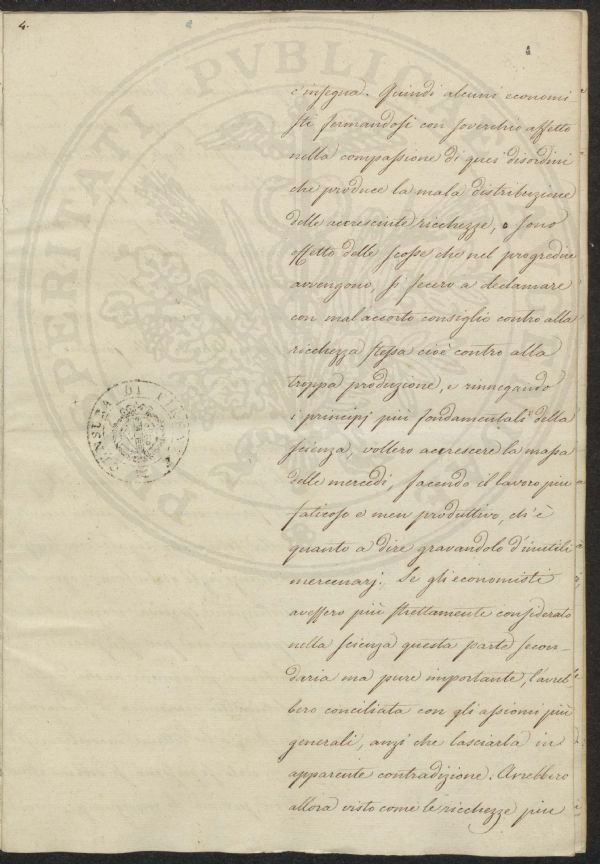 4.
4
e insegna. Quindi alcuni economi
sti fermandosi con soverchio affetto
nella compassione di quei disordini
che produce la mala distribuzione
delle accresciute ricchezze, o sono
effetto delle scosse che nel progredire
avvengono, si fecero a declamare
con mal accorto consiglio contro alla
ricchezza stessa cioè contro alla
troppa produzione, e rinnegando
i principj più fondamentali della
scienza, vollero accrescere la massa
delle mercedi, facendo il lavoro più
faticoso e men produttivo, ch'è
quanto a dire gravandolo d'inutili
mercenarj. Se gli economisti
avessero più strettamente considerato
nella scienza questa parte secon-
daria ma pure importante, l'avreb-
bero conciliata con gli assiomi più
generali, anzi che lasciarla in
apparente contradizione. Avrebbero
allora visto come le ricchezze più
CENSURA DI FIRENZE
PROSPERITATI PVBLICAE